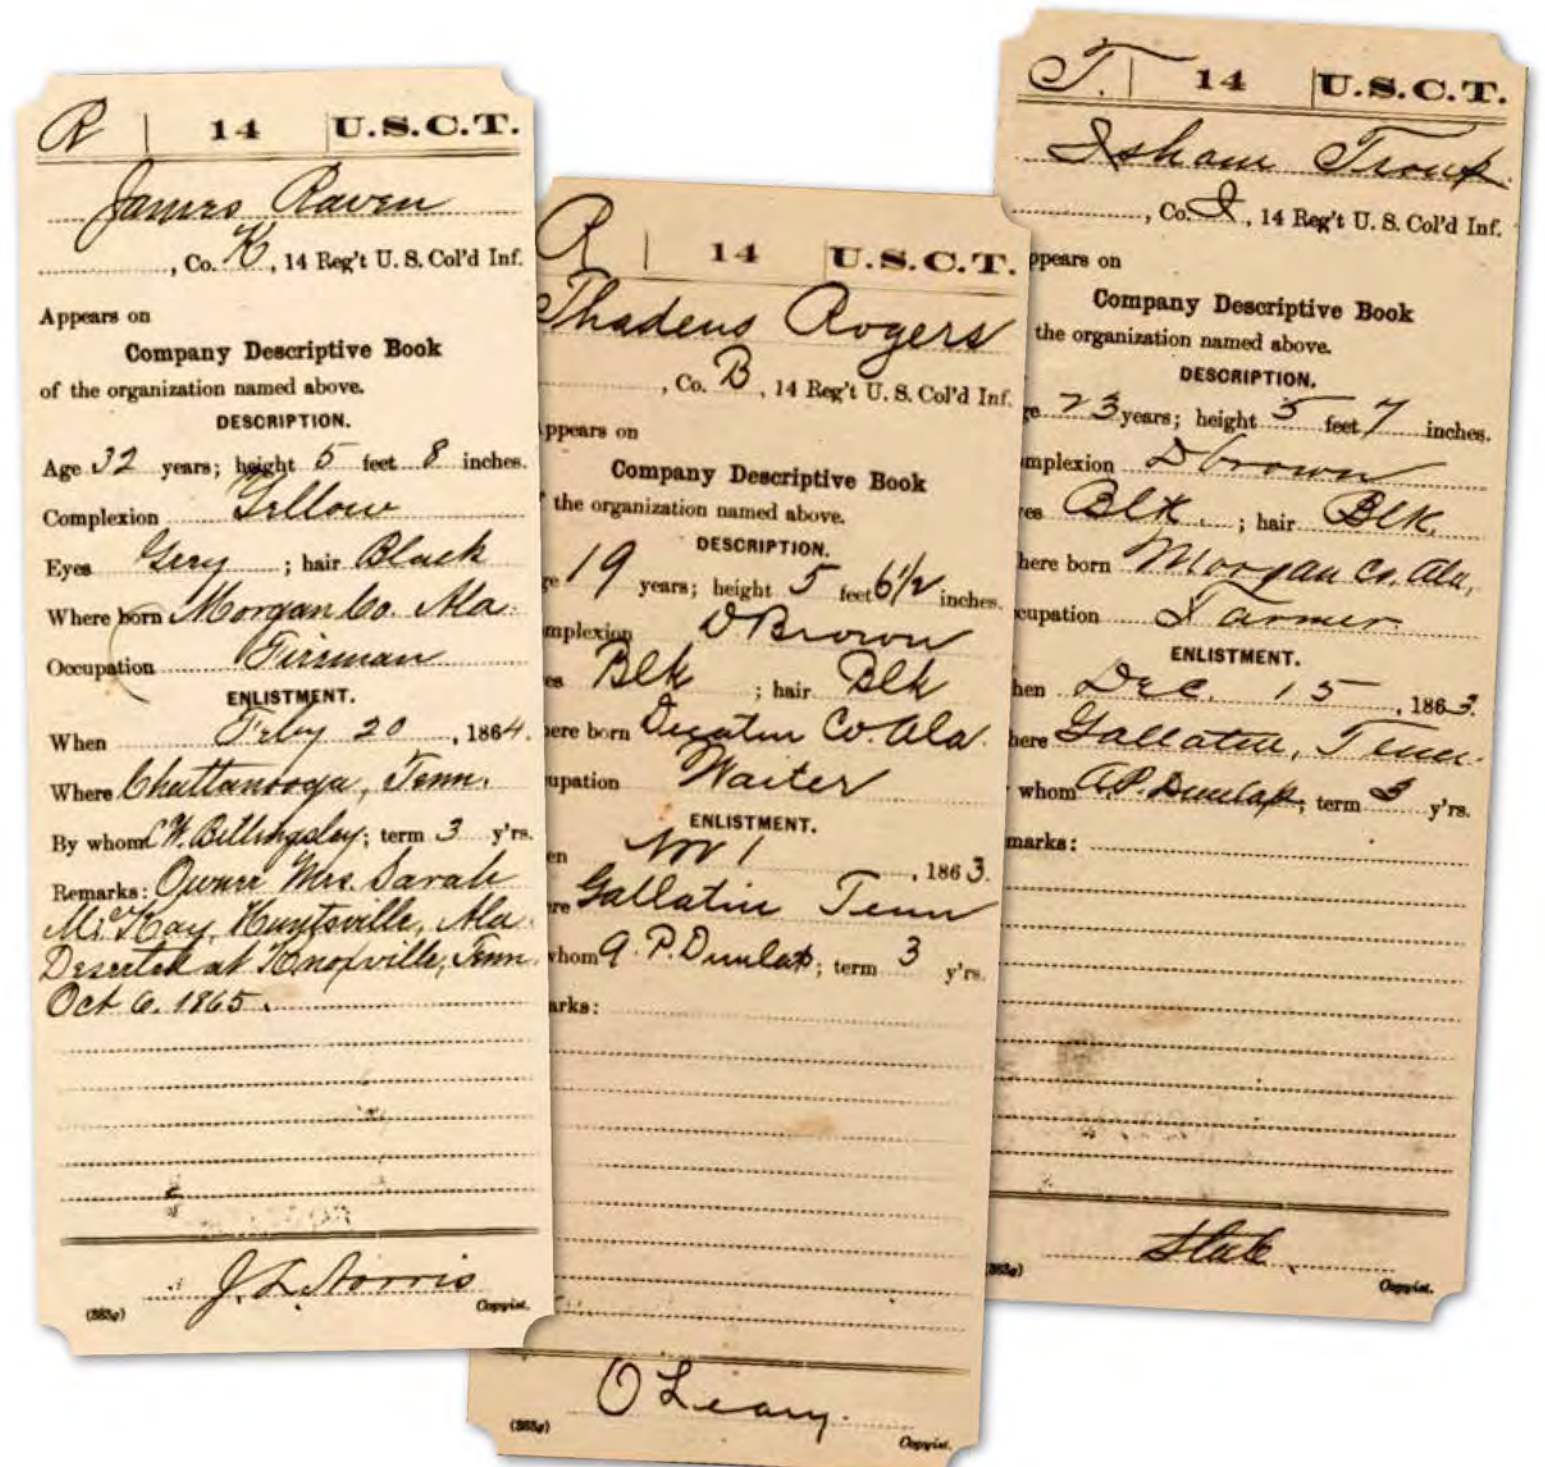 R | 14 | U.S.C.T.
James Raven
, Co. K, 14 Reg't U. S. Col'd Inf.
Appears on
Company Descriptive Book
of the organization named above.
DESCRIPTION.
Age 32 years; height 5 feet 8 inches.
Complexion Yellow
Eyes Grey ; hair Black
Where born Morgan Co. Ala.
Occupation Fireman
ENLISTMENT.
When Feby 20 , 1864.
Where Chattanooga, Tenn.
By whom C W. Billingsley; term 3 y'rs.
Remarks: Owner Mrs. Sarah
McKay, Huntsville, Ala.
Deserted at Knoxville, Tenn.
Oct 6. 1865.
J. L. Norris
(383g) Copyist.
R | 14 | U.S.C.T.
Thadeus Rogers
, Co. B, 14 Reg't U. S. Col'd Inf.
ppears on
Company Descriptive Book
the organization named above.
DESCRIPTION.
ge 19 years; height 5 feet 6 1/2 inches.
mplexion D Brown
es Blk ; hair Blk
here born Decatur Co. Ala.
upation Waiter
ENLISTMENT.
en Nov 1 , 1863.
re Gallatin Tenn
whom A. P. Dunlap; term 3 y'rs.
arks:
O Leary.
(383g) Copyist.
T. | 14 | U.S.C.T.
Isham Troup
, Co. I, 14 Reg't U. S. Col'd Inf.
ppears on
Company Descriptive Book
the organization named above.
DESCRIPTION.
ge 23 years; height 5 feet 7 inches.
mplexion D brown
es Blk. ; hair Blk.
here born Morgan Co. Ala,
cupation Farmer
ENLISTMENT.
hen Dec. 15 , 1863.
here Gallatin, Tenn.
whom A. P. Dunlap; term 3 y'rs.
marks:
383g) Copyist.